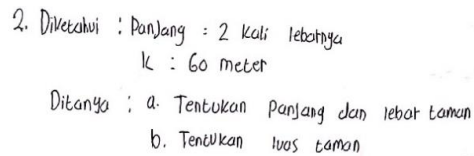 2. Diketahui : Panjang : 2 kali lebarnya
K : 60 meter
Ditanya : a. Tentukan Panjang dan lebar taman
b. Tentukan luas taman